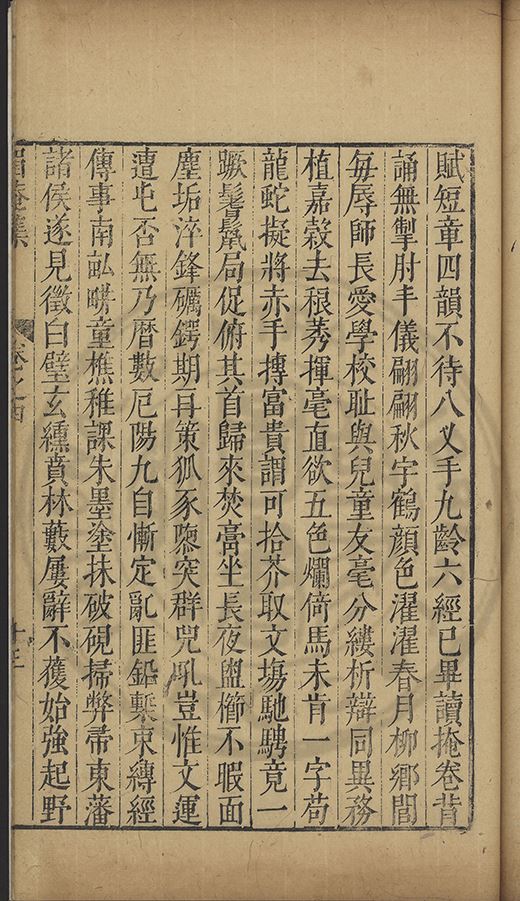 賦短章四韻不待八乂手九齡六經已畢讀掩卷背
誦無掣肘丰儀翩翩秋宇鶴顏色濯濯春月柳鄉閭
每辱師長愛學校耻與兒童友毫分縷析辯同異務
植嘉穀去稂莠揮毫直欲五色爛倚馬未肯一字苟
龍蛇擬將赤手摶富貴謂可拾芥取文塲馳騁竟一
蹶鬐鬣局促俯其首歸來焚膏坐長夜盥櫛不暇面
塵垢淬鋒礪鍔期再策狐豕隳突群兕吼豈惟文運
遭屯否無乃曆數厄陽九自慚定亂匪鉛槧束縳經
傳事南畝畊童樵稚課朱墨塗抹破硯掃弊帚東藩
諸侯遂見徵白璧玄纁賁林藪屢辭不獲始強起野
眉菴集 卷之四